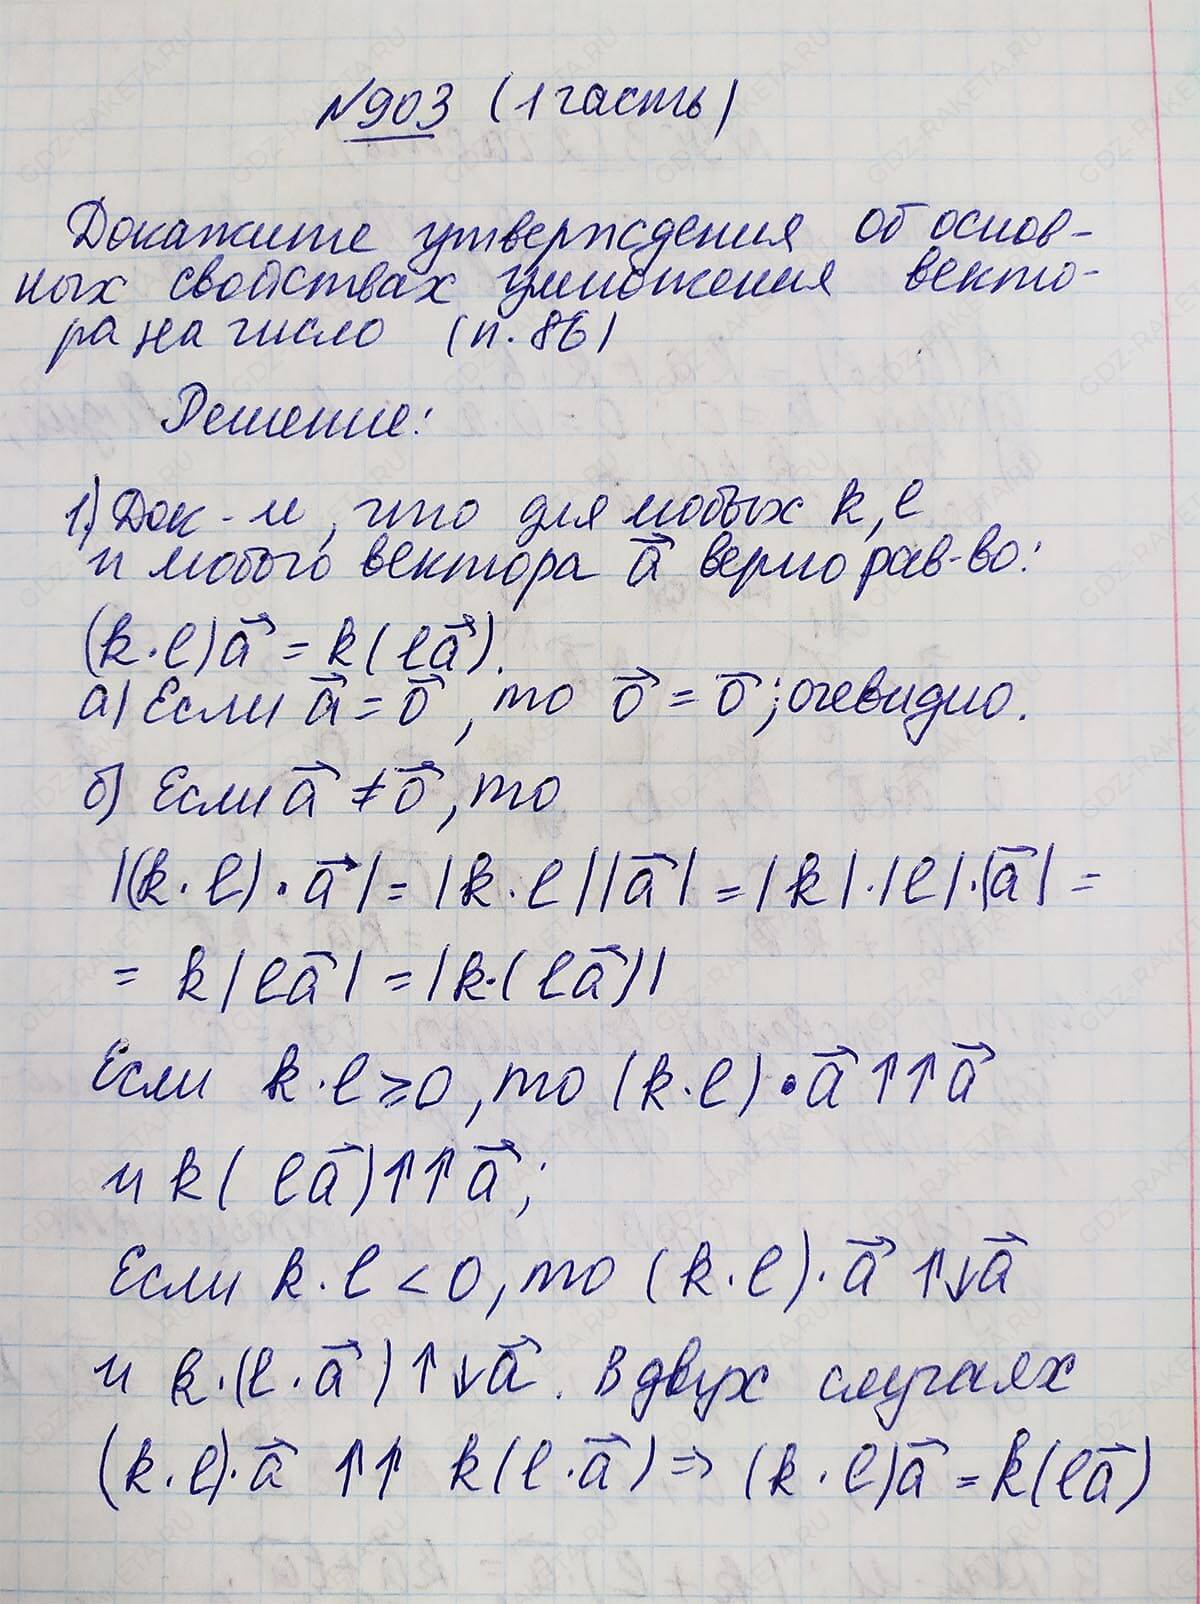 №903 (1 часть)
Докажите утверждения об основ-
ных свойствах умножения векто-
ра на число (п. 86)
Решение:
1) Док-м, что для любых k, l
и любого вектора a⃗ верно рав-во:
(k·l)a⃗ = k(la⃗).
а) Если a⃗ = 0⃗, то 0⃗ = 0⃗; очевидно.
б) Если a⃗ ≠ 0⃗, то
|(k·l)·a⃗| = |k·l||a⃗| = |k|·|l|·|a⃗| =
= k|la⃗| = |k·(la⃗)|
Если k·l ⩾ 0, то (k·l)·a⃗ ↑↑ a⃗
и k(la⃗) ↑↑ a⃗;
Если k·l < 0, то (k·l)·a⃗ ↑↓ a⃗
и k·(l·a⃗) ↑↓ a⃗. В двух случаях
(k·l)·a⃗ ↑↑ k(l·a⃗) ⇒ (k·l)a⃗ = k(la⃗)
GDZ-RAKETA.RU